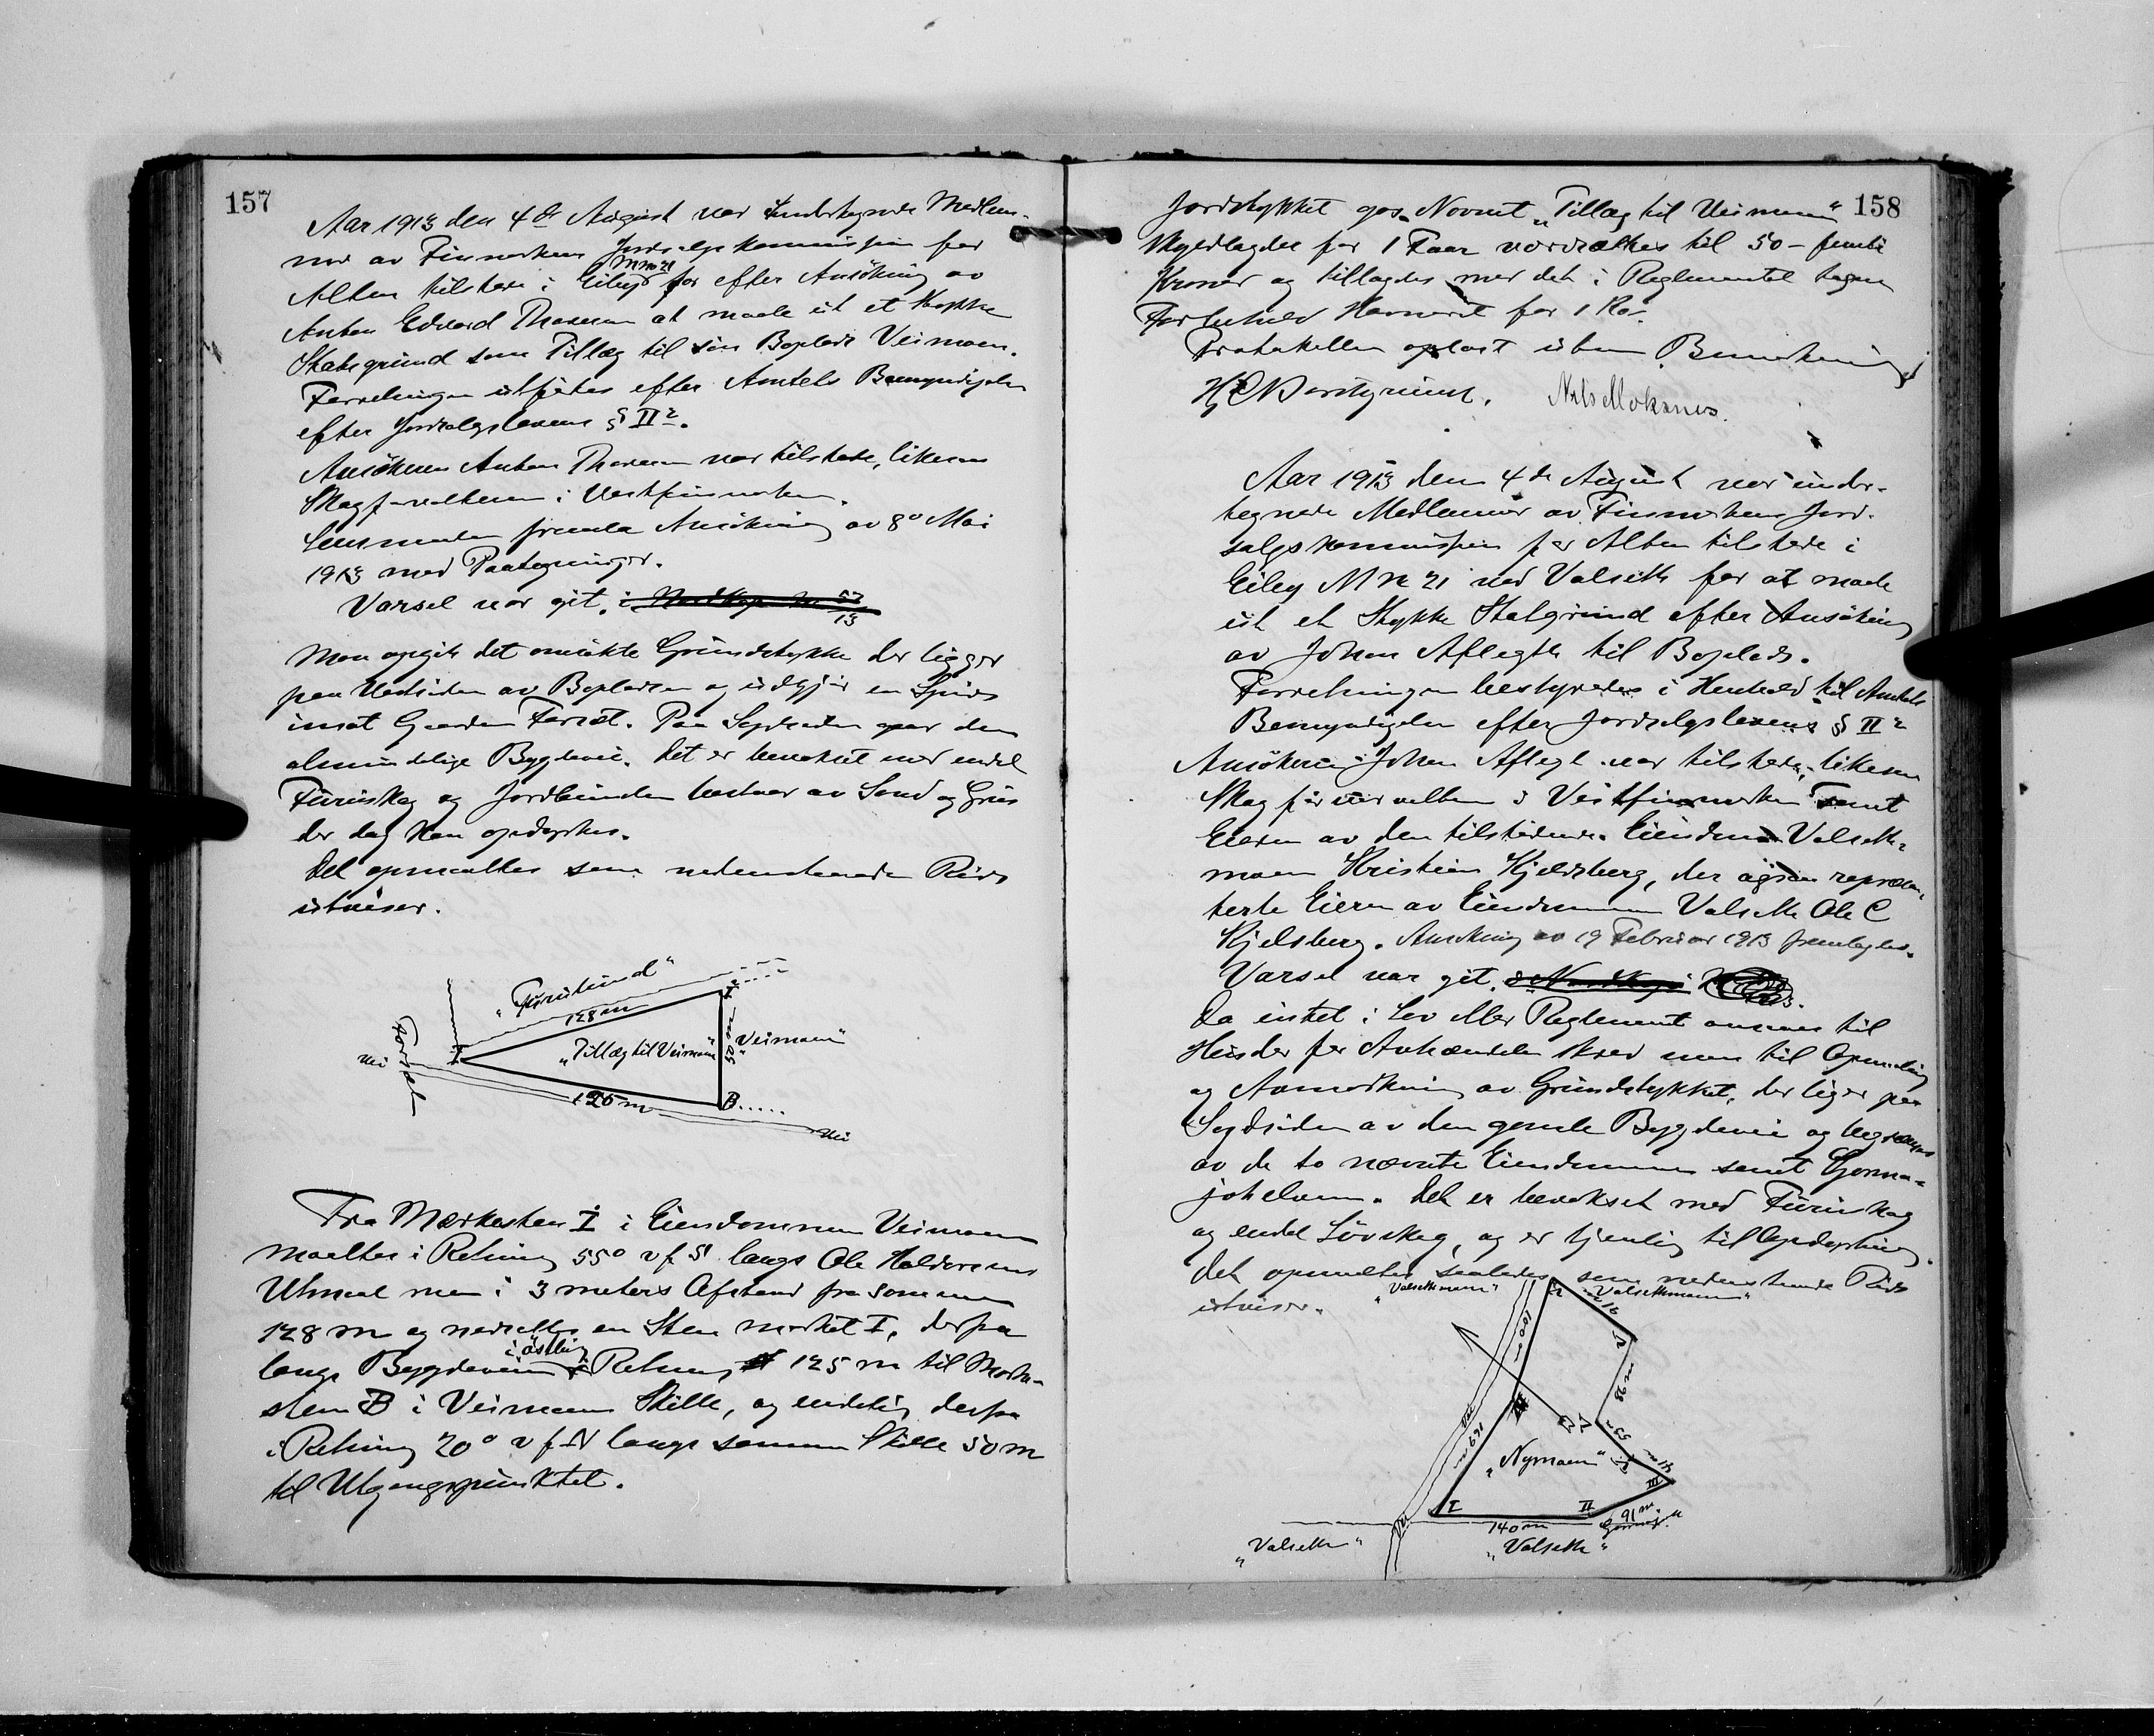 157
Aar 1913 den 4de August var Undertegnede Medlem-
mer av Finmarkens Jordsalgskommission for
M No 21
Alten tilstede i Eiby for efter Ansökning av
Anton Edvard Thomesen at maale ut et Stykke
Statsgrund som Tillæg til sin Boplads Veimoen.
Forretningen utförtes efter Amtets Bemyndigelse
efter Jordsalgslovens § II 2.
Ansökeren Anton Thomesen var tilstede, likesom
Skogforvalteren i Vestfinmarken.
Lensmanden fremla Ansökning av 8de Mai
1913 med Paategninger.
Varsel var git.
Man opgik det omsökte Grundstykke der ligger
paa Vestsiden av Bopladsen og utgjör en Spids
imot Gaarden Forræt. Paa Sydsiden gaar den
almindelige Bygdevei. Det er bevokset med endel
Furuskog og Jordbunden bestaar av Sand og Grus
der dog kan opdyrkes.
Det opmaaltes som nedenstaaende Rids
utviser.
„Furulund"
128 m
I
„Tillæg til Veimoen"
50 m
„Veimoen"
Vei
I
125 m
B
Vei
Fra Merkesten I i Eiendommen Veimoen
maaltes i Retning 55° v f S langs Ole Haldorsens
Utmaal men i 3 meters Afstand fra samme
128 m og nedsattes en Sten merket I, derfra
i östlig
langs Bygdeveien Retning 125 m til Merke-
sten B i Veimoens Skille, og endelig derfra
i Retning 20° v f N langs samme Skille 50 m
til Utgangspunktet.
158
Jordstykket gas Navnet „Tillæg til Veimoen"
skyldlagdes for 1 Øre værdsættes til 50 - femti
Kroner og tillagdes med det i Reglementet tagne
Forbehold Havneret for 1 Ko.
Protokollen oplæst uten Bemerkning
Nils Moksnes.
Aar 1913 den 4de August var under-
tegnede Medlemmer av Finmarkens Jord-
salgskommission for Alten tilstede i
Eiby M No 21 ved Valsett for at maale
ut et Stykke Statsgrund efter Ansökning
av Johan Aflegt til Boplads.
Forretningen bestyredes i Henhold til Amtets
Bemyndigelse efter Jordsalgslovens § II 2
Ansökeren Johan Aflegt var tilstede, likesom
Skogforvalteren i Vestfinmarken samt
Eieren av den tilstödende Eiendom Valsett-
moen Kristian Kjeldsberg, der ogsaa repræsen-
terte Eieren av Eiendommen Valsett Ole C
Kjelsberg. Ansökning av 19 Februar 1913 fremlagdes.
Varsel var git.
Da intet i Lov eller Reglement ansaaes til
Hinder for Avhændelse skred man til Opmaaling
og Avmerkning av Grundstykket, der ligger paa
Sydsiden av den gamle Bygdevei og begrænses
av de to nævnte Eiendommer samt Gorma-
johelven. Det er bevokset med Furuskog
og endel Lövskog, og er tjenlig til Opdyrkning.
Det opmaaltes saaledes som nedenstaaende Rids
utviser.
„Valsettmoen"
„Valsettmoen"
100 m
98 m
Vei
169 m
„Nymoen"
55
41 m
III
I
II
91 m
140 m
„Valsett"
„Valsett"